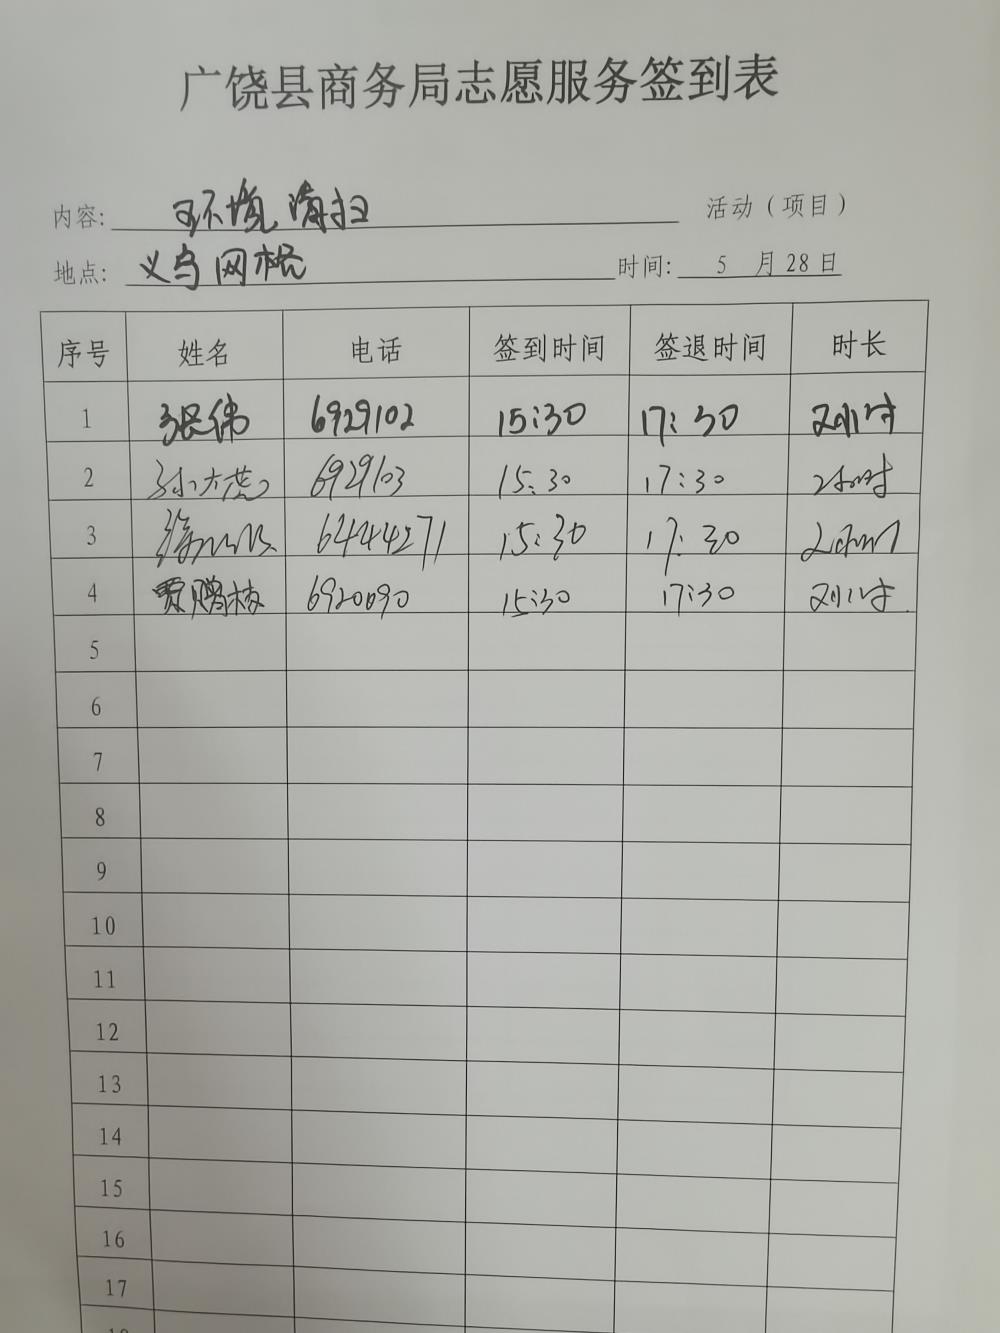 广饶县商务局志愿服务签到表
内容: 环境清扫 活动（项目）
地点: 义乌网格 时间: 5 月 28 日
序号 姓名 电话 签到时间 签退时间 时长
1 张伟 6929102 15:30 17:30 2小时
2 6929103 15:30 17:30 2小时
3 6444271 15:30 17:30 2小时
4 贾鹏 6920090 15:30 17:30 2小时
5
6
7
8
9
10
11
12
13
14
15
16
17
18